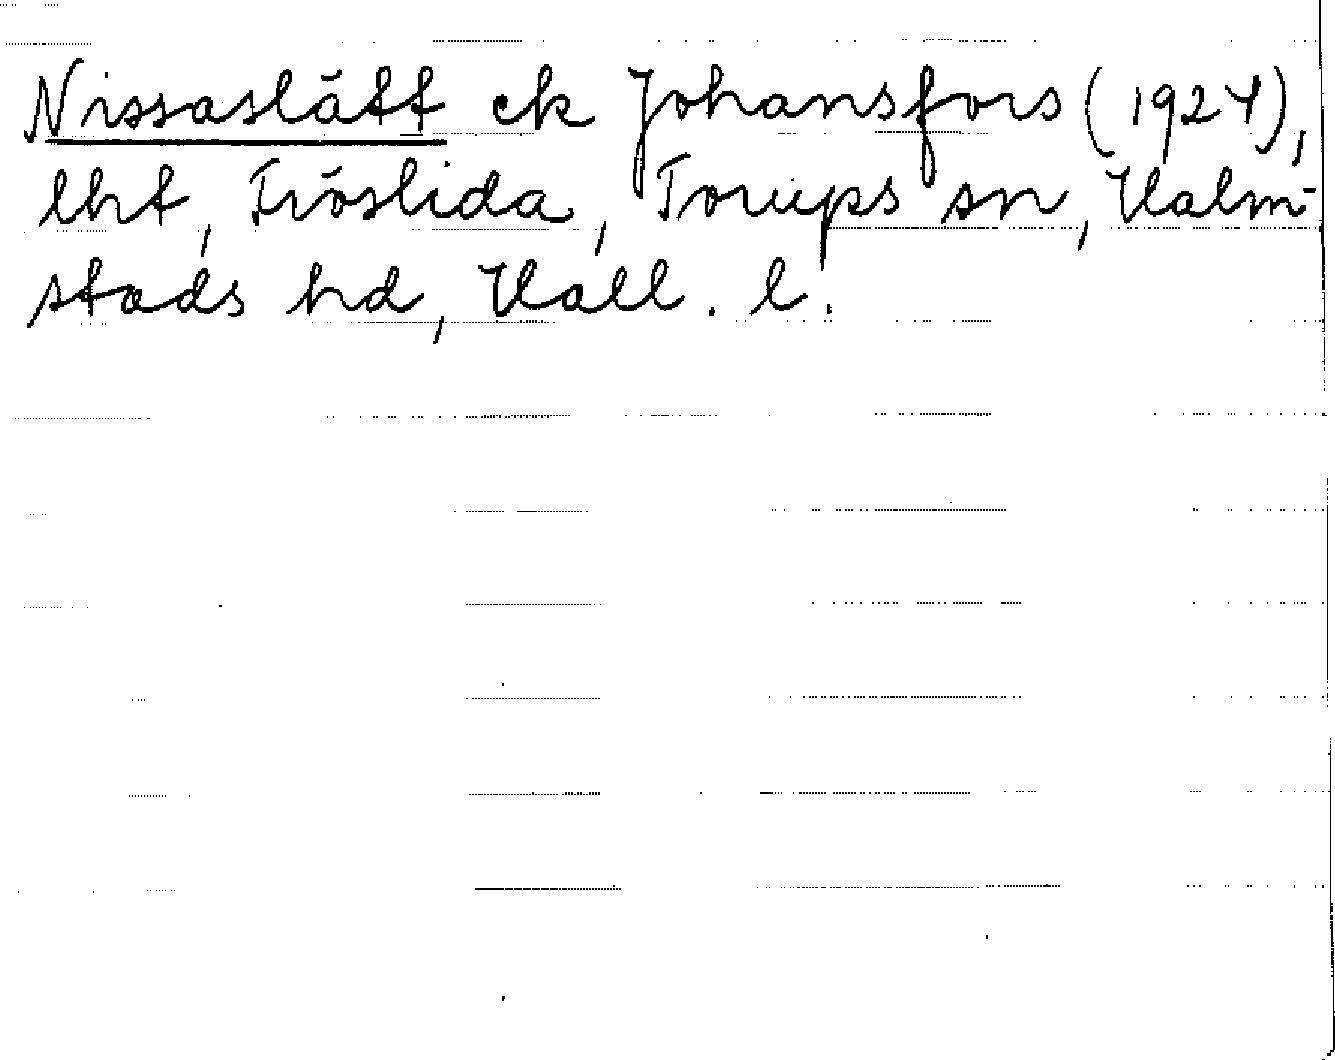 Nissaslätt ek Johansfors (1924),
lht, Fröslida, Torups sn, Halm-
stads hd, Hall. l.